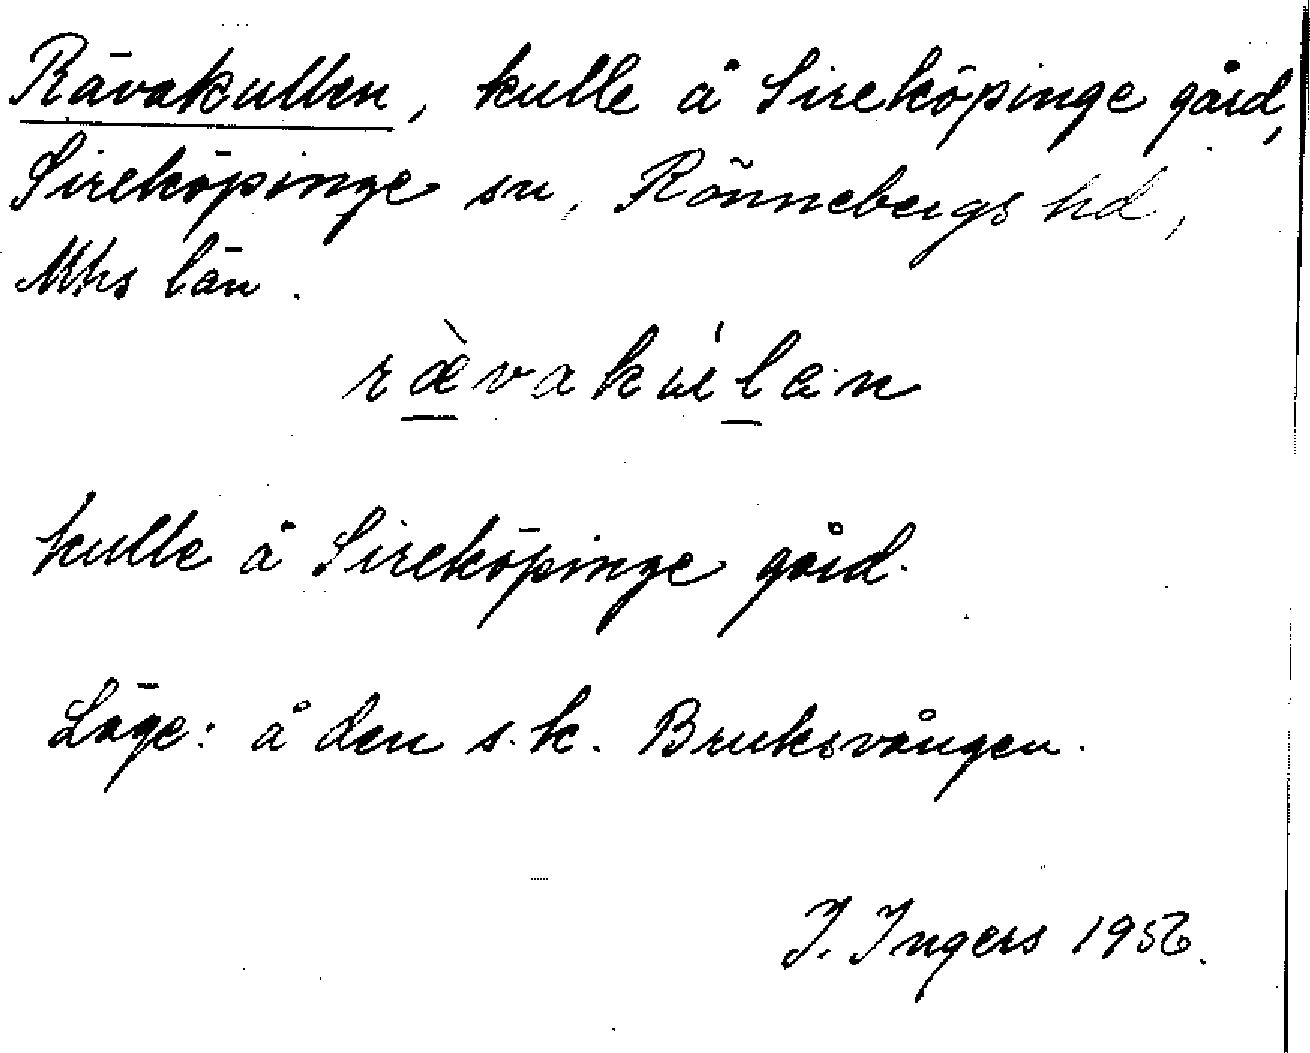 Rävakullen, kulle å Sireköpinge gård,
Sireköpinge sn, Rönnebergs hd,
Mhs län.
rævakúlan
kulle å Sireköpinge gård.
Läge: å den s.k. Bruksvången.
I. Ingers 1956.